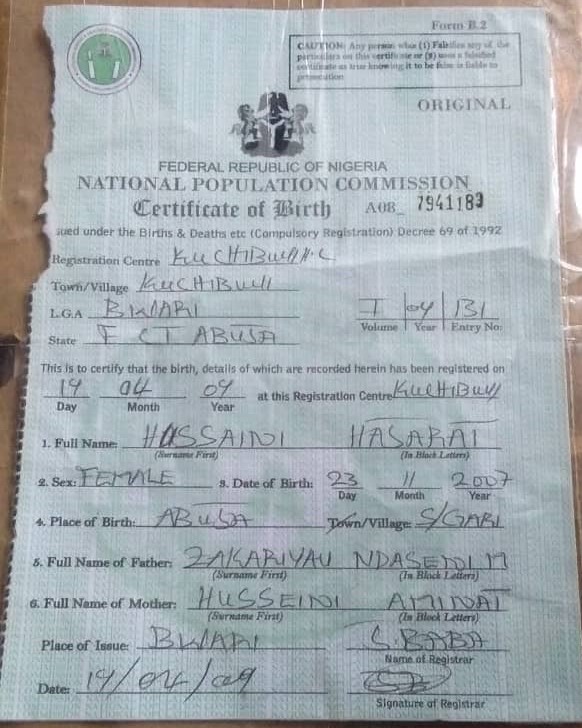 Form B.2
CAUTION: Any person who (1) Falsifies any of the
particulars on this certificate or (2) uses a falsified
certificate as true knowing it to be false is liable to
prosecution
ORIGINAL
FEDERAL REPUBLIC OF NIGERIA
NATIONAL POPULATION COMMISSION
Certificate of Birth A08_ 7941183
sued under the Births & Deaths etc (Compulsory Registration) Decree 69 of 1992
Registration Centre KUCHIBUYI H.C
Town/Village KUCHIBUYI
L.G.A BWARI
I 04 131
Volume Year Entry No:
State FCT ABUJA
This is to certify that the birth, details of which are recorded herein has been registered on
19 04 09 at this Registration Centre KUCHIBUYI
Day Month Year
1. Full Name: HUSSAINI HASARAT
(Surname First) (In Block Letters)
2. Sex: FEMALE 3. Date of Birth: 23 11 2007
Day Month Year
4. Place of Birth: ABUJA Town/Village: S/GARI
5. Full Name of Father: ZAKARIYAU
(Surname First) (In Block Letters)
6. Full Name of Mother: HUSSEINI AMINAT
(Surname First) (In Block Letters)
Place of Issue: BWARI S. BABA
Name of Registrar
Date: 19/04/09
Signature of Registrar